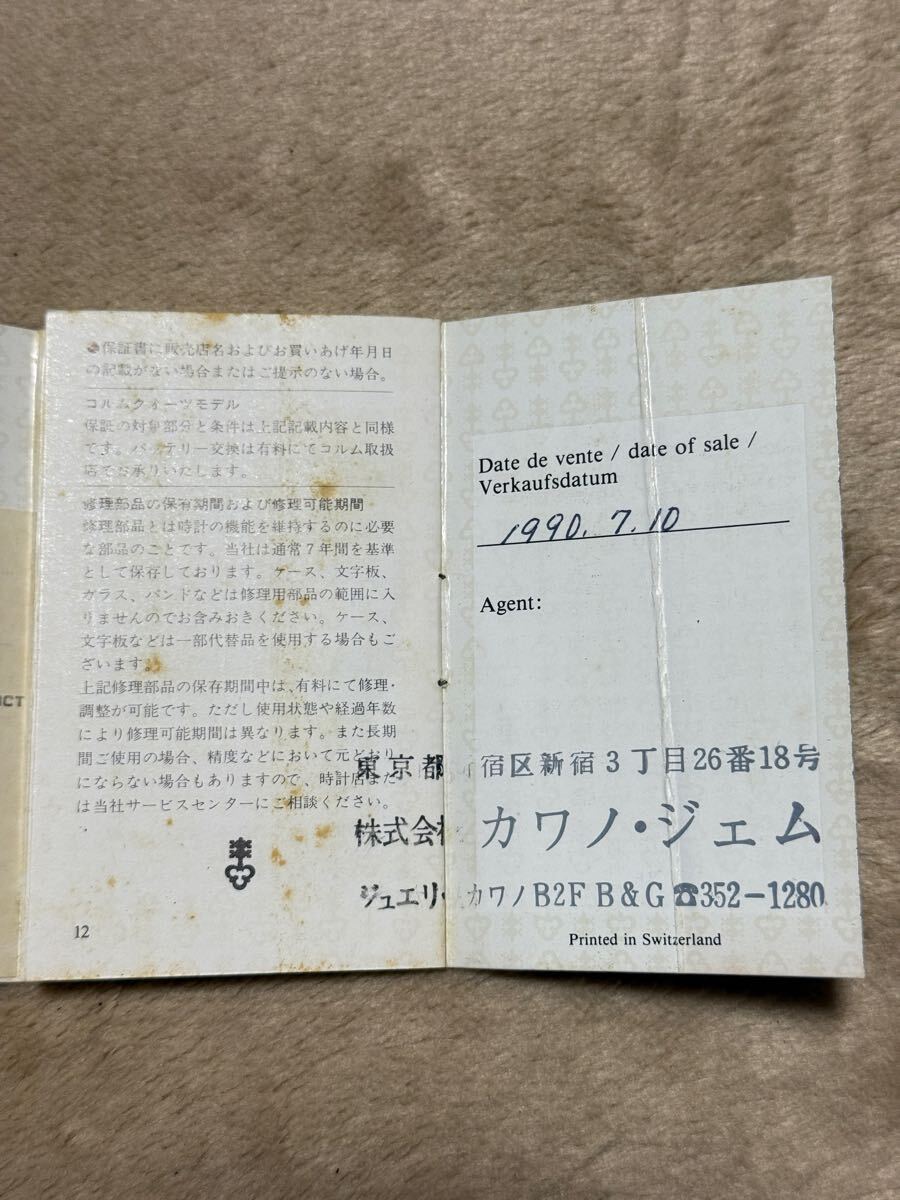 ●保証書に販売店名およびお買いあげ年月日
の記載がない場合またはご提示のない場合。
コルムクォーツモデル
保証の対象部分と条件は上記記載内容と同様
です。バッテリー交換は有料にてコルム取扱
店でお承りいたします。
修理部品の保有期間および修理可能期間
修理部品とは時計の機能を維持するのに必要
な部品のことです。当社は通常7年間を基準
として保存しております。ケース、文字板、
ガラス、バンドなどは修理用部品の範囲に入
りませんのでお含みおきください。ケース、
文字板などは一部代替品を使用する場合もご
ざいます。
上記修理部品の保存期間中は、有料にて修理・
調整が可能です。ただし使用状態や経過年数
により修理可能期間は異なります。また長期
間ご使用の場合、精度などにおいて元どおり
にならない場合もありますので、時計店また
は当社サービスセンターにご相談ください。
12
Date de vente / date of sale /
Verkaufsdatum
1990. 7. 10
Agent:
東京都 宿区新宿3丁目26番18号
株式会 カワノ・ジェム
ジュエリ カワノB2F B&G ☎352-1280
Printed in Switzerland
CT